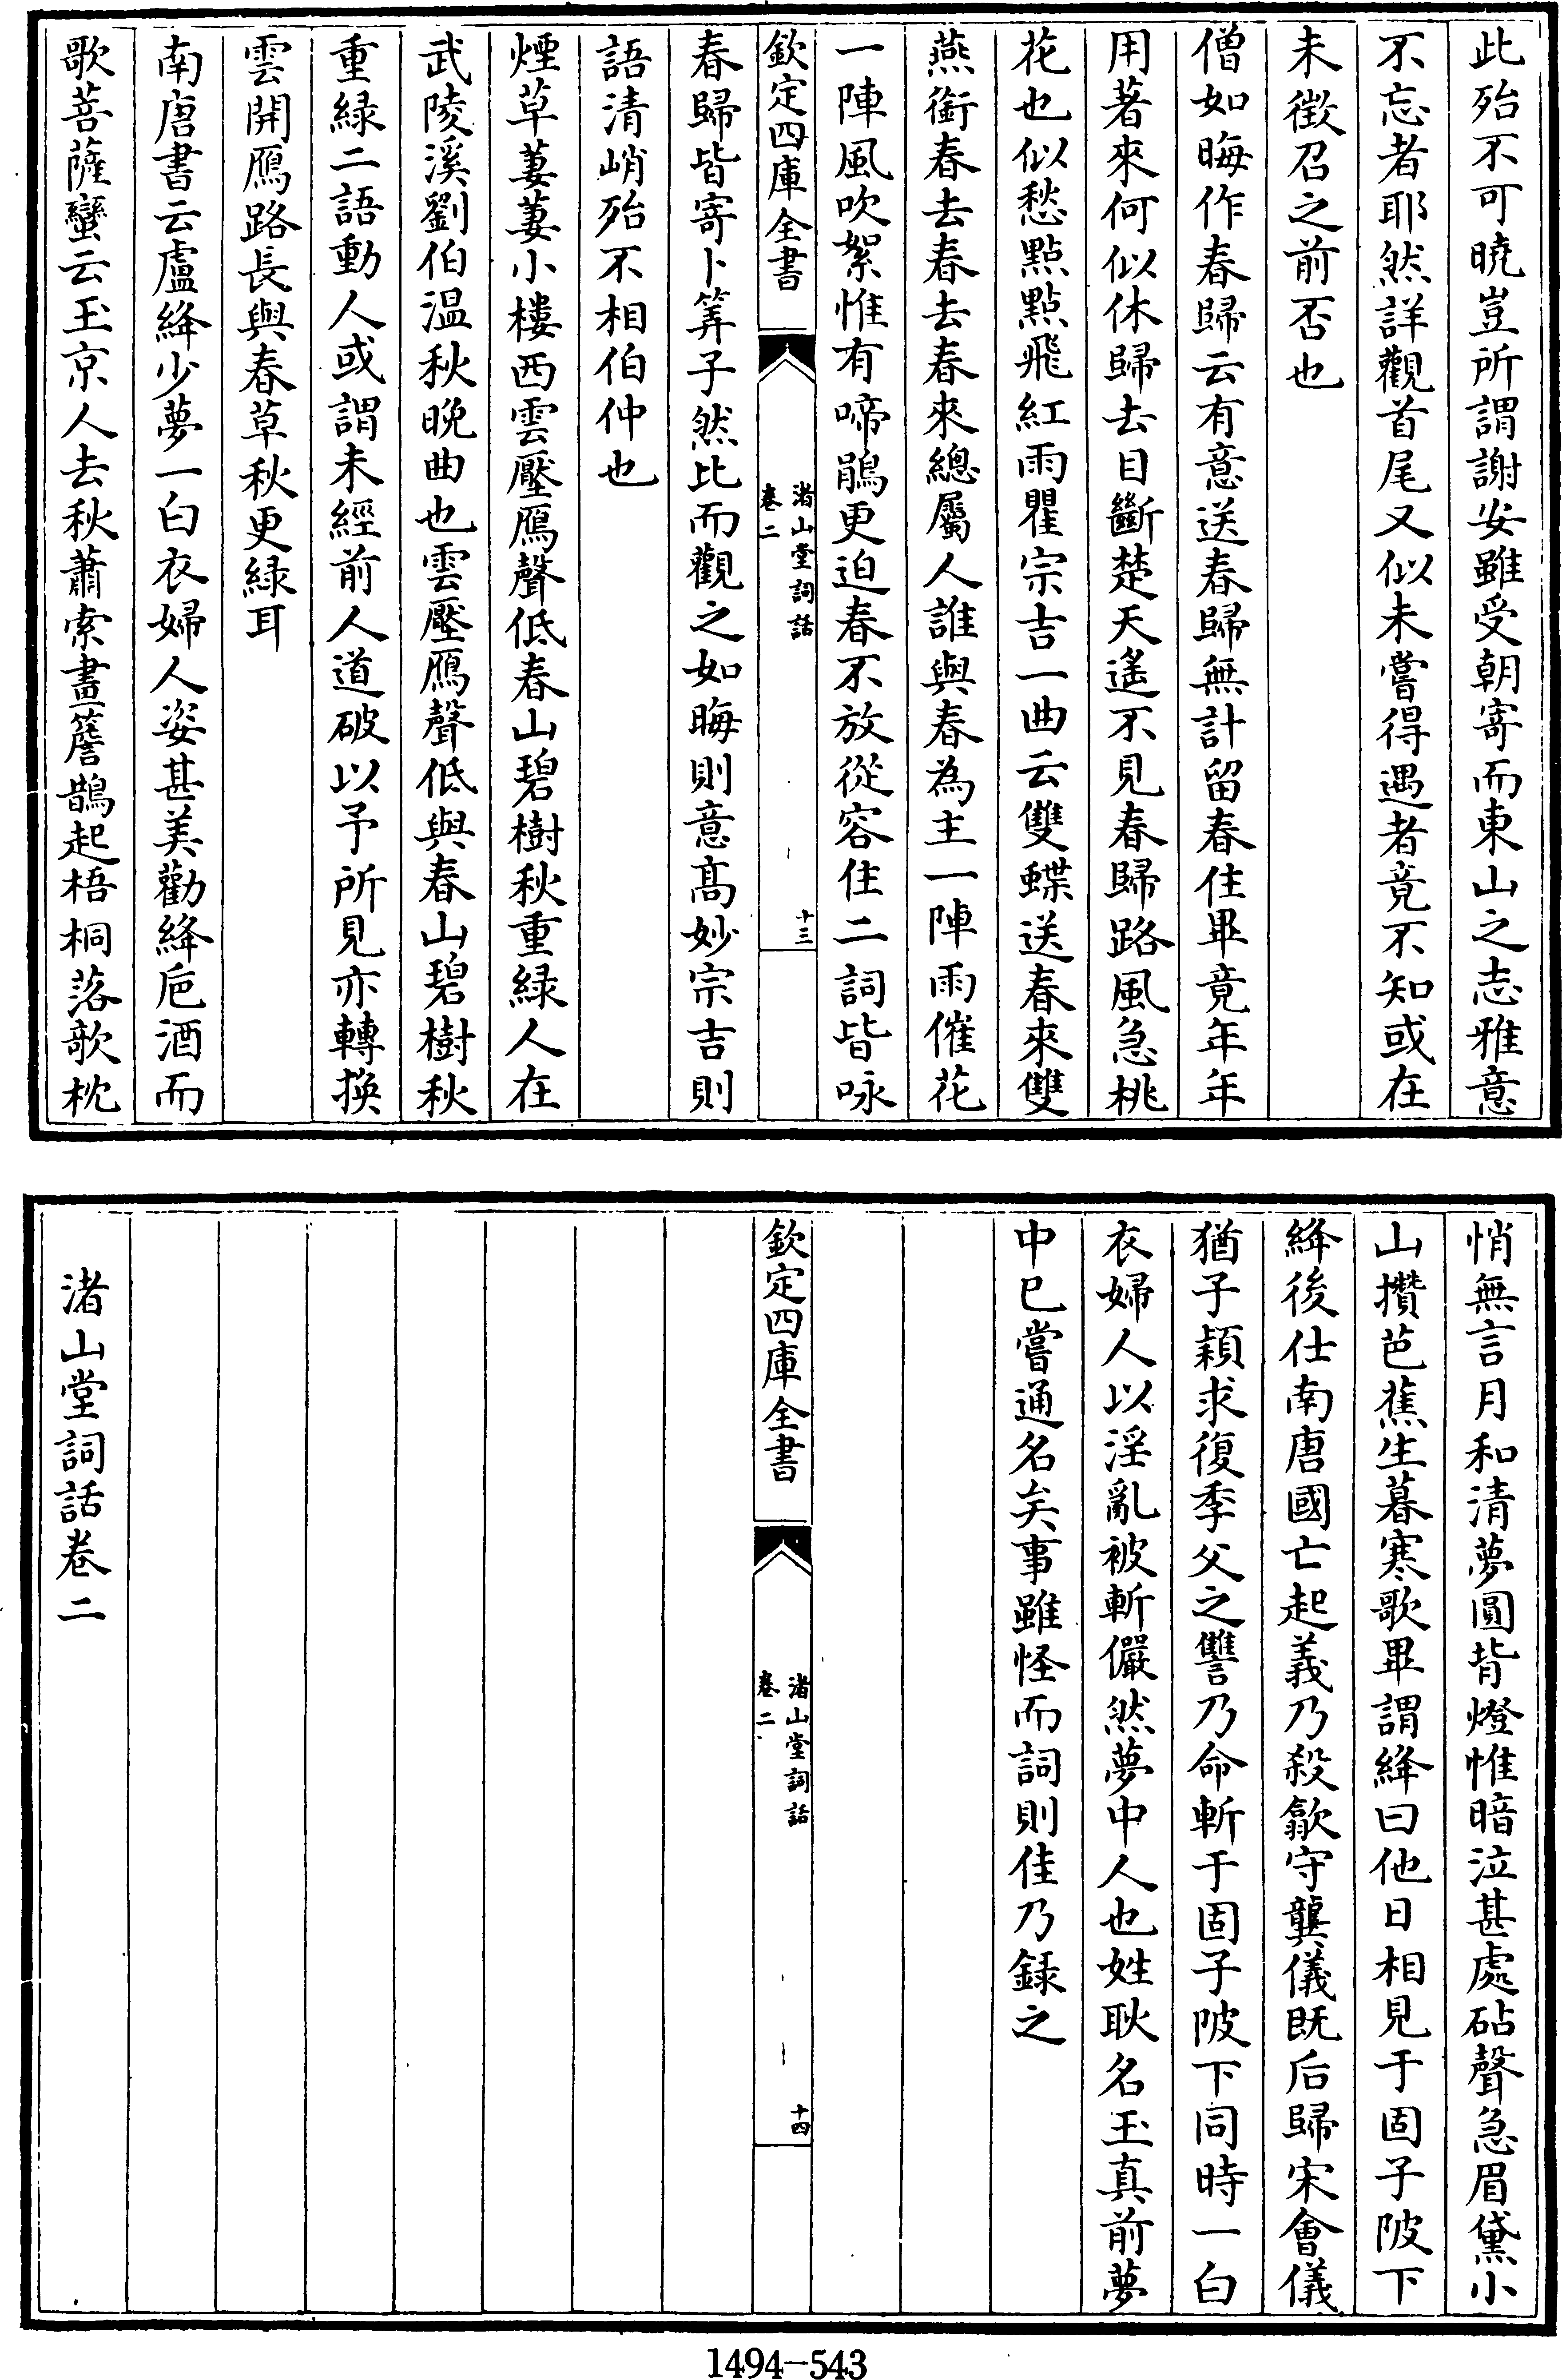 此殆不可曉豈所謂謝安雖受朝寄而東山之志雅意
不忘者耶然詳觀首尾又似未嘗得遇者竟不知或在
未徴召之前否也
僧如晦作春歸云有意送春歸無計留春住畢竟年年
用著來何似休歸去目斷楚天遙不見春歸路風急桃
花也似愁點點飛紅雨瞿宗吉一曲云雙蝶送春來雙
燕銜春去春去春來總屬人誰與春為主一陣雨催花
一陣風吹絮惟有啼鵑更迫春不放從容住二詞皆咏
欽定四庫全書
渚山堂詞話
卷二
十三
春歸皆寄卜筭子然比而觀之如晦則意髙妙宗吉則
語清峭殆不相伯仲也
煙草萋萋小樓西雲壓鴈聲低春山碧樹秋重緑人在
武陵溪劉伯温秋晚曲也雲壓鴈聲低與春山碧樹秋
重緑二語動人或謂未經前人道破以予所見亦轉換
雲開鴈路長與春草秋更緑耳
南唐書云盧絳少夢一白衣婦人姿甚美勸絳巵酒而
歌菩薩蠻云玉京人去秋蕭索畫簷鵲起梧桐落欹枕
悄無言月和清夢圓背燈惟暗泣甚處砧聲急眉黛小
山攢芭蕉生暮寒歌畢謂絳曰他日相見于固子陂下
絳後仕南唐國亡起義乃殺歙守龔儀既后歸宋會儀
猶子穎求復季父之讐乃命斬于固子陂下同時一白
衣婦人以淫亂被斬儼然夢中人也姓耿名玉真前夢
中已嘗通名矣事雖怪而詞則佳乃録之
欽定四庫全書
渚山堂詞話
卷二
十四
渚山堂詞話卷二
1494-543